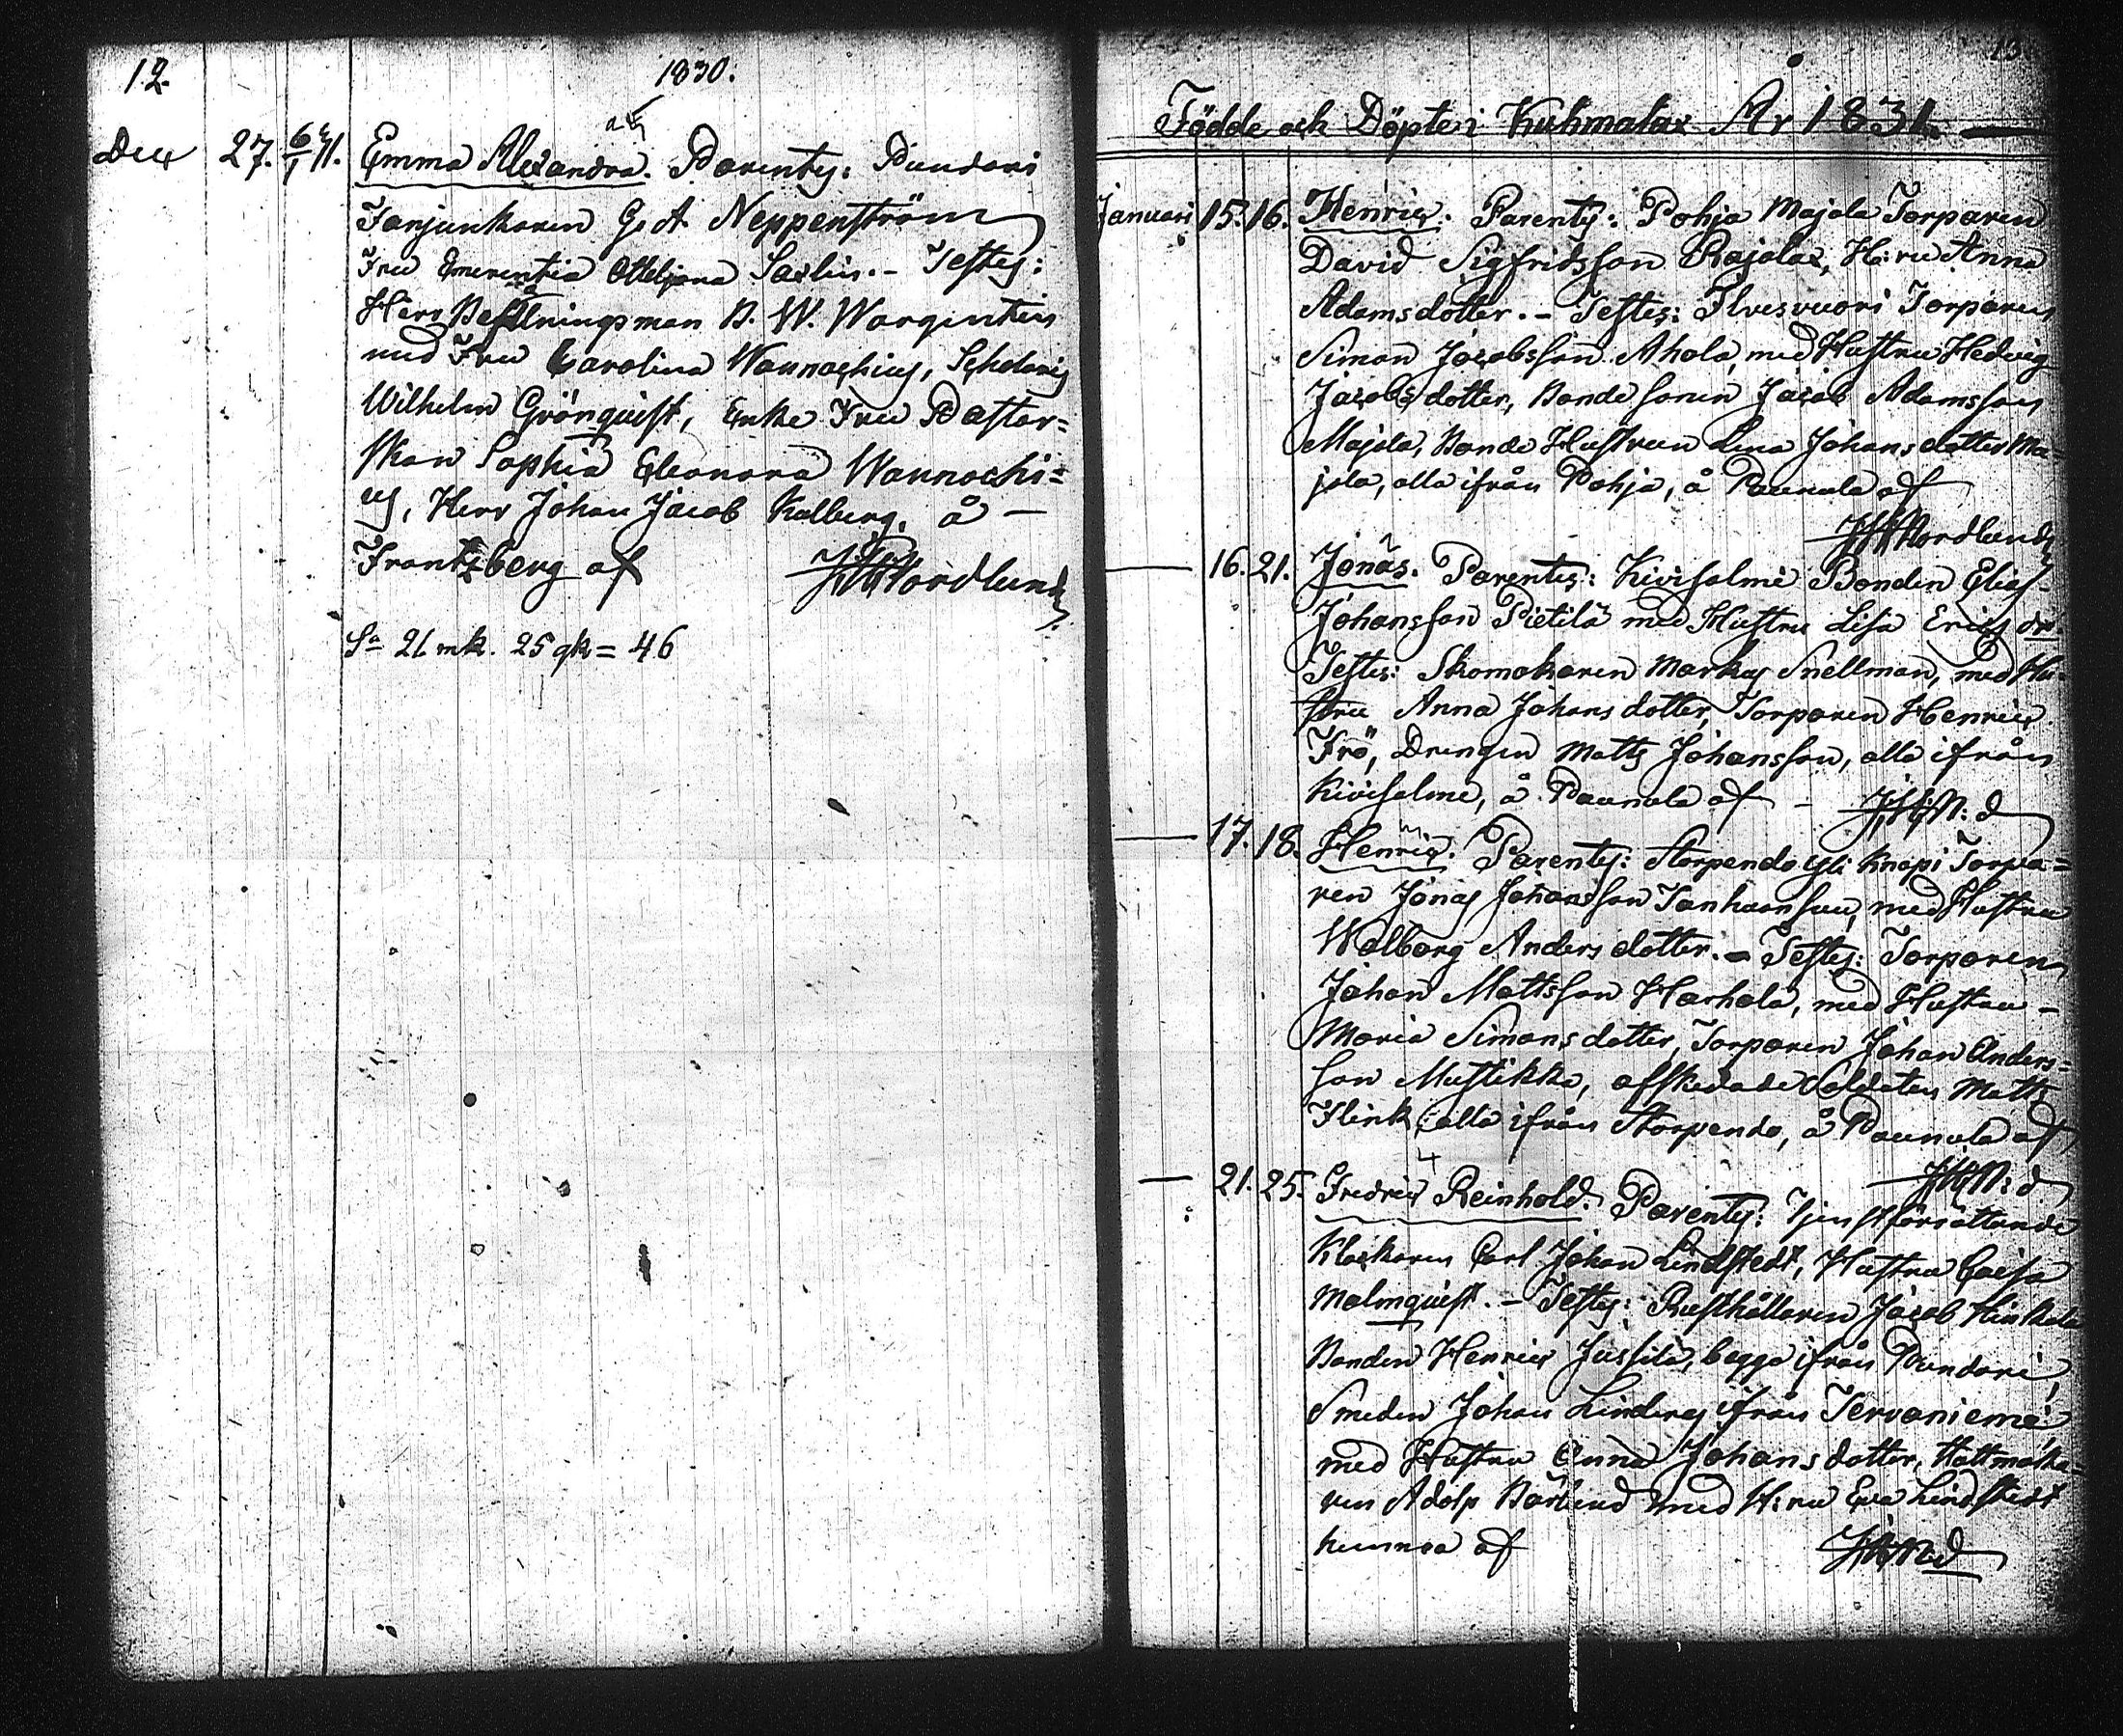 12. 1830.
Dec 27. 6/1 31. Emma Alexandra. Parentes: Pundars
Fanjunkaren G. A. Neppenström
Fru Emerentia Ottiljana Saxlin. - Testes:
Herr Befallningsman B. W. Wargentin
med Fru Carolina Wannochius, Scholaris
Wilhelm Grönquist, Enke Fru Pastor=
skan Sophia Eleonora Wannochi=
us, Herr Johan Jacob Kalberg, å -
Frantzberg af Nordlund
Sa 21 mk. 25 qk = 46
13
Födde och Döpte i Kuhmalax År 1831.
Januari 15. 16. Henric. Parentes: Pohja Majala Torparen
David Sigfridsson Rajala, H:ru Anna
Adamsdotter. - Testes: Ilvesvuori Torparen
Simon Jacobsson Ahola, med Hustru Hedvig
Jacobsdotter, Bonde sonen Jacob Adamsson
Majala, Bonde Hustrun Lena Johansdotter Ma=
jala, alla ifrån Pohja, å Paunula af
Nordlund
16. 21. Jonas. Parentes: Kivisalmi Bonden Elias
Johansson Pietilä med Hustru Lisa Erics dr.
Testes: Skomakaren Markus Snellman, med Hu=
stru Anna Johansdotter, Torparen Henric
Frö, Drengen Matts Johansson, alla ifrån
Kivisalmi, å Paunula af - N:d
17. 18. Henric. Parentes: Storpendo Yli Knapi Torpa=
ren Jonas Johansson Tanhuanpää, med Hustru
Walborg Andersdotter. - Testes: Torparen
Johan Mattsson Harhala, med Hustru -
Maria Simonsdotter, Torparen Johan Anders=
son Mustikka, afskedade Soldaten Matts
Flink, alla ifrån Storpendo, å Paunula af
N:d
21. 25. Fredric Reinhold. Parentes: Tjenstförrättande
Klockaren Carl Johan Lindstedt, Hustru Caisa
Malmquist. - Testes: Rusthållaren Jacob Hinkala
Bonden Henric Jussila, bägge ifrån Pundari,
Smeden Johan Lindroos ifrån Tervaniemi,
med Hustru Anna Johansdotter, Hattmaka=
ren Adolp Barlund med H:ru Eva Lindstedt
hemma af N:d